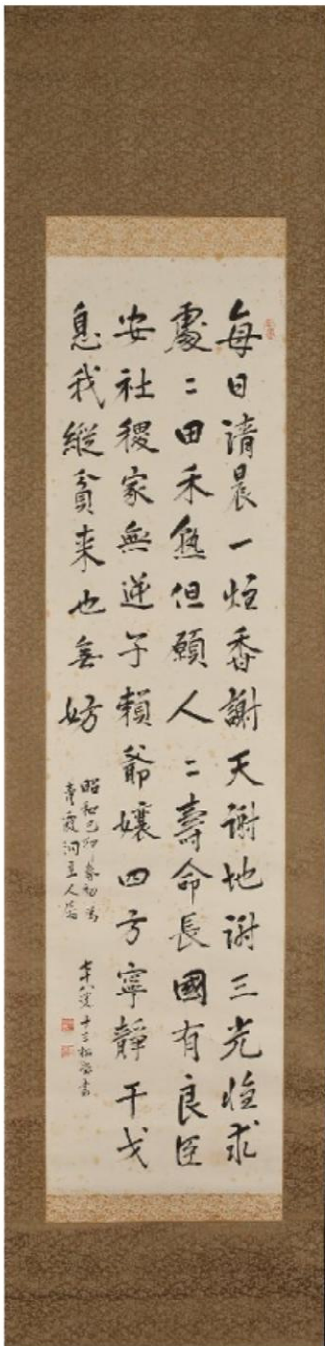 每日清晨一炷香謝天謝地謝三光惟求
處〻田禾熟但願人〻壽命長國有良臣
安社稷家無逆子賴爺孃四方寧靜干戈
息我縱貧来也無妨
昭和己卯春初為
青霞洞主人
七十八叟十三松堂書